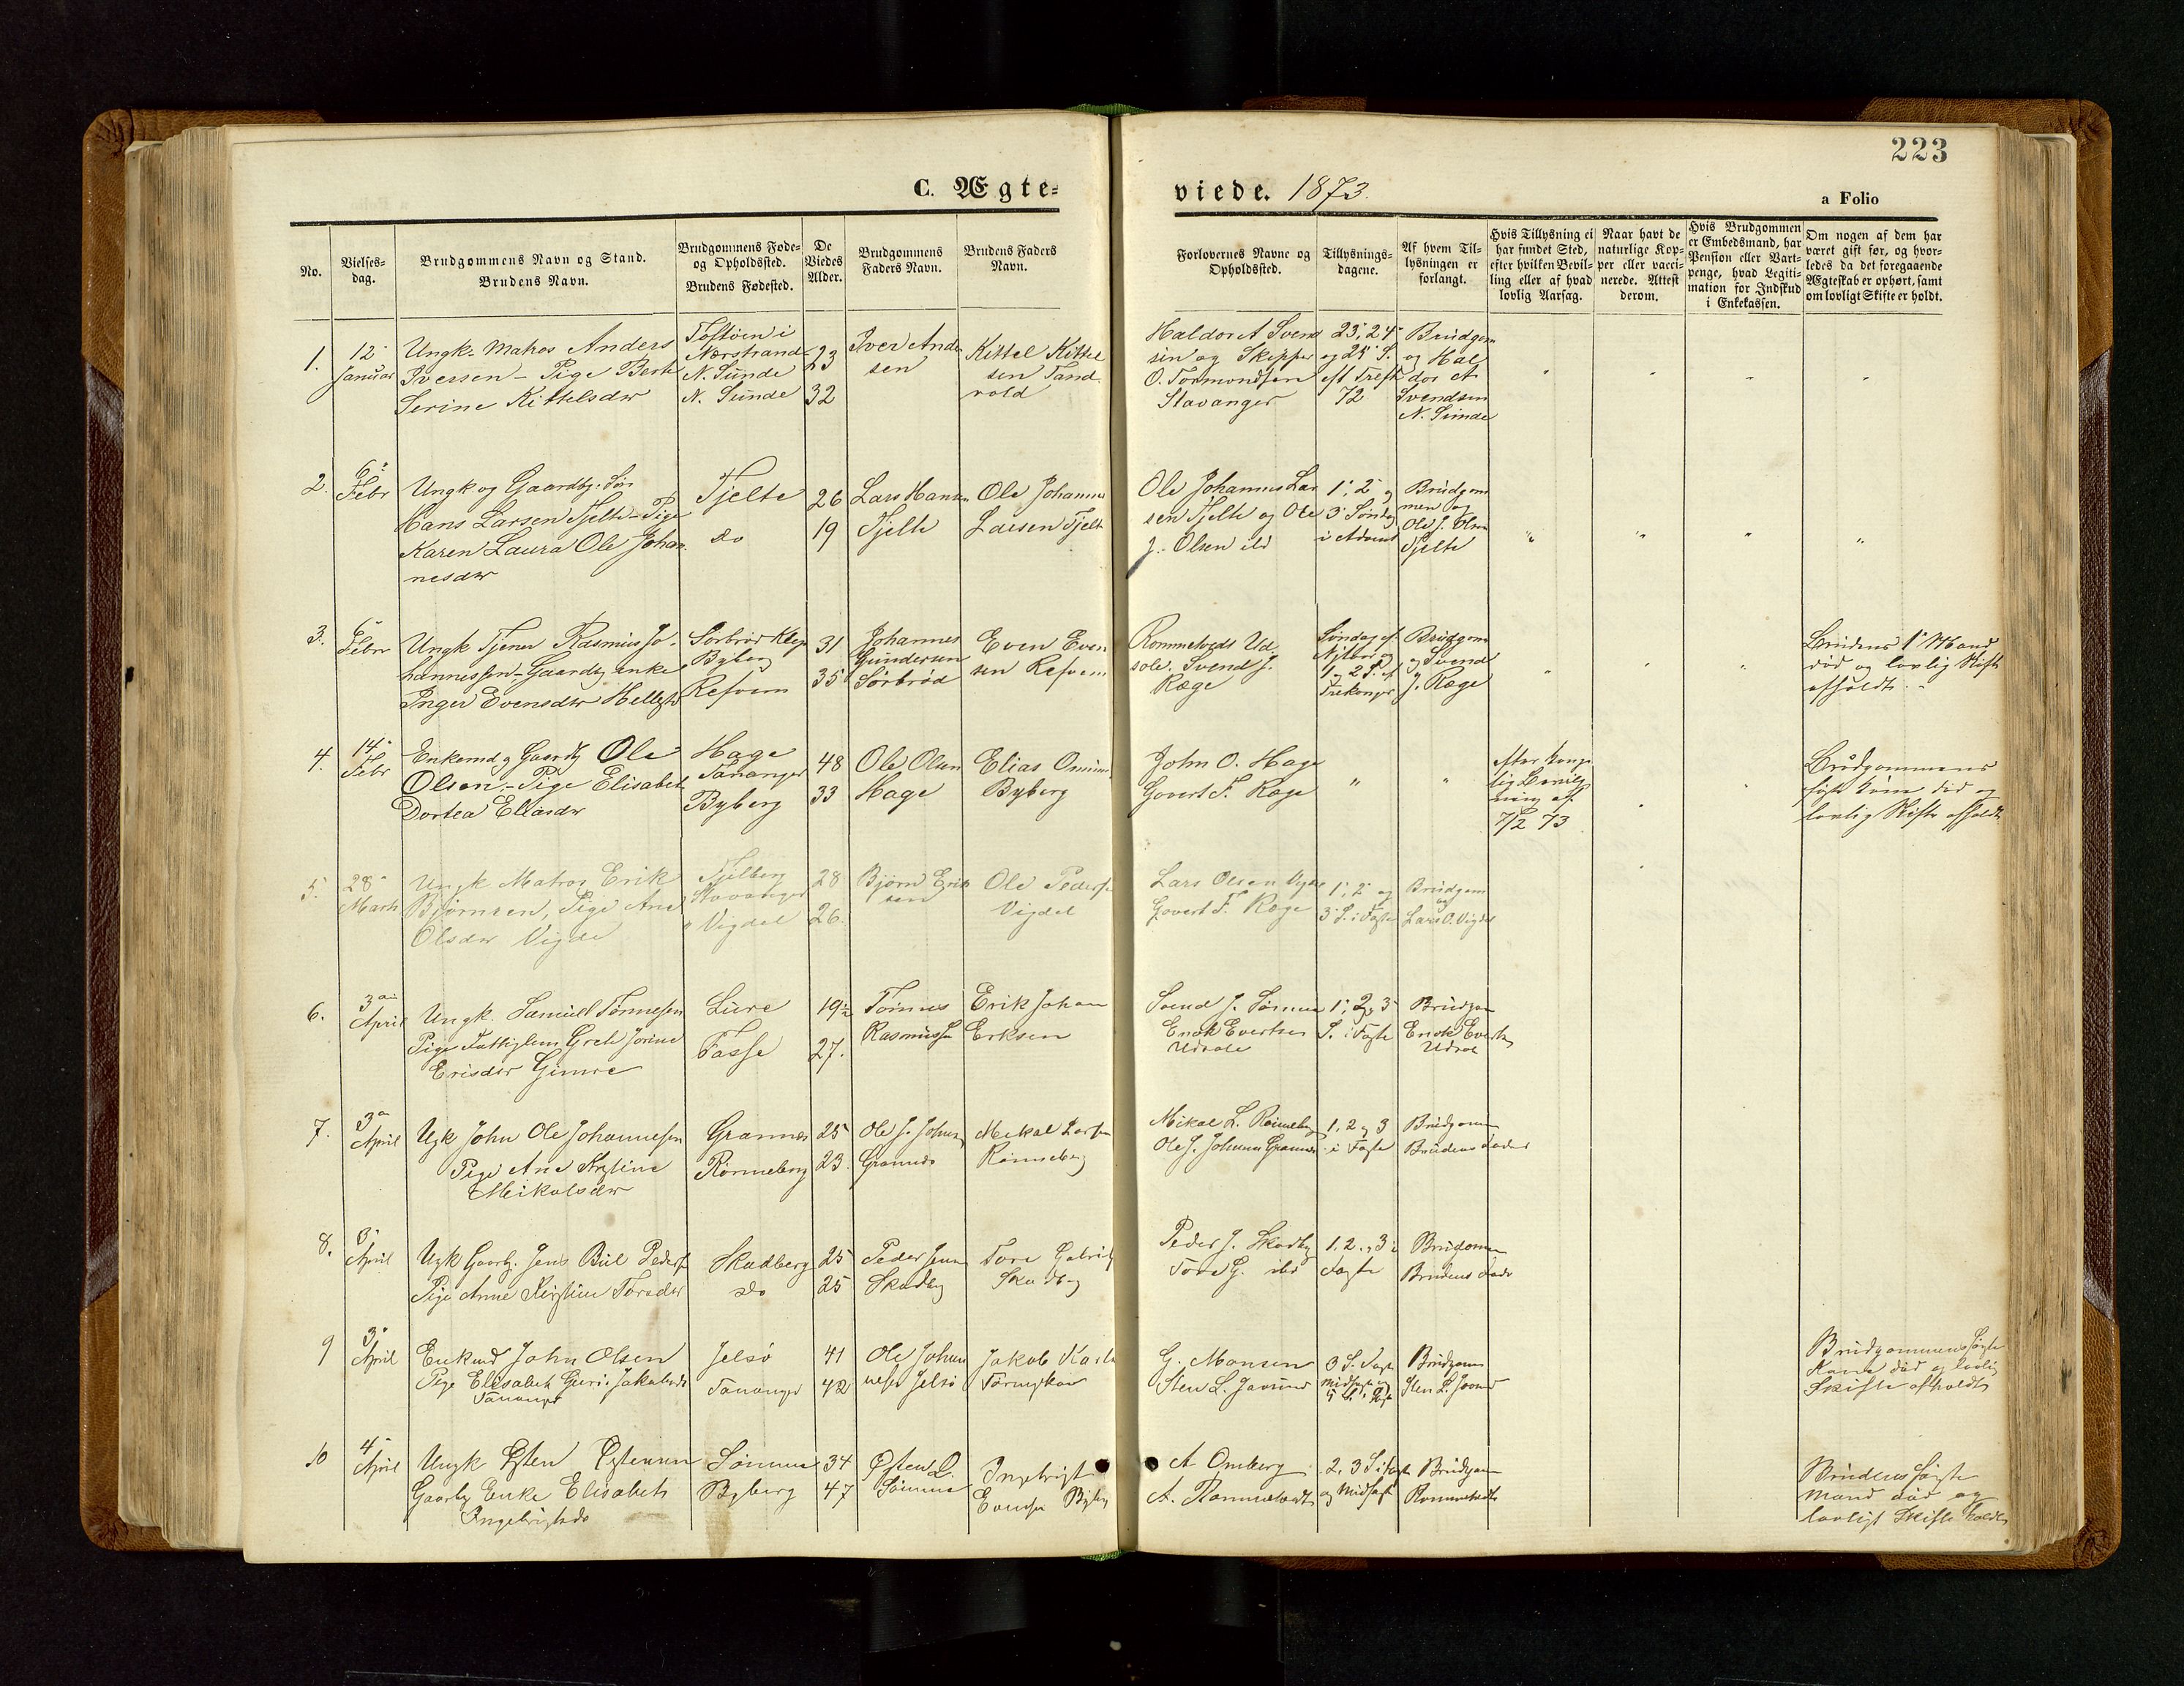 223
C. Ægte-
viede. 1873.
a Folio
No.
Vielses-
dag.
Brudgommens Navn og Stand.
Brudens Navn.
Brudgommens Føde-
og Opholdssted.
Brudens Fødested.
De
Viedes
Alder.
Brudgommens
Faders Navn.
Brudens Faders
Navn.
Forlovernes Navne og
Opholdssted.
Tillysnings-
dagene.
Af hvem Til-
lysningen er
forlangt.
Hvis Tillysning ei
har fundet Sted,
efter hvilken Bevil-
ling eller af hvad
lovlig Aarsag.
Naar havt de
naturlige Kop-
per eller vacci-
nerede. Attest
derom.
Hvis Brudgommen
er Embedsmand, har
Pension eller Vart-
penge, hvad Legiti-
mation for Indskud
i Enkekassen.
Om nogen af dem har
været gift før, og hvor-
ledes da det foregaaende
Ægteskab er ophørt, samt
om lovligt Skifte er holdt.
1.
12
Januar
Ungk. Matros Anders
Iversen - Pige Berte
Serine Kittelsdtr
Toftøen i
Nerstrand
N. Sunde
N. Sunde
23
32
Iver Ander
sen
Kittel Kittel
sen Tand
Haldor A Svend
sen og Skipper
O. Tormondsen
Stavanger
23, 24
og 25 S.
eft Tref
72
Brudgom
og Hal
dor A
Svendsen
N. Sunde
2.
6
Febr
Ungk og Gaardbr. Søn
Hans Larsen Tjelte - Pige
Karen Laura Ole Johan
nesdtr
Tjelte
do
26
19
Lars Hansen
Tjelte
Ole Johannes
Larsen Tjelte
Ole Johannes Lar
sen Tjelte og Ole
J. Olsen ibd
1, 2 og
3 Søndag
i Advent
Brudgom
men og
Ole J. Olsen
Tjelte
3.
6
Febr
Ungk Tjener Rasmus Jo-
hannessen - Gaardbr enke
Inger Evensdtr
Sørbrød Klep
Byberg
Refvem
31
35
Johannes
Gundersen
Sørbrød
Even Even
sen Refvem
Rommetvedt Ud
sole. Svend J.
Ræge
Søndag ef.
Nytaar og
1 og 2 S. ef
Trekonger
Brudgom
og Svend
J. Ræge
Brudens 1 Mand
død og lovlig Skift
afholdt.
4.
14
Febr
Enkemd og Gaardb Ole
Olsen - Pige Elisabet
Dortea Eliasdtr
Hage
Tananger
Byberg
48
33
Ole Olsen
Hage
Elias
Byberg
John O. Hage
Govert F. Ræge
efter kong
lig Bevilg
ning af
7/2 73
Brudgommens
første Kone død og
lovlig Skifte afholdt
5.
28
Marts
Ungk Matros Erik
Bjørnsen, Pige Ane
Olsdtr Vigde
Tjelberg
Stavanger
Vigdel
28
26.
Bjørn Erik
sen
Ole Peders
Vigdel
Lars Olsen Vigde
Govert F. Ræge
1, 2 og
3 S. i Faste
Brudgom
og
Lars O. Vigdel
6.
3
April
Ungk. Samuel Tønnesen
Pige Grete Jorine
Gimre
Lure
Tasse
19½
27.
Tønnes
Rasmuss
Erik Johan
Erksen
Svend J. Sømme
Enok Evertsen
Udsole
1, 2 og 3
S. i Faste
Brudgom
Enok Everts
Udsol
7.
3
April
Ugk John Ole Johannessen
Pige Ane Kristine
Mikalsdtr
Grannes
Rønneberg
25
23
Ole J. Johans
Grannes
Mikal Lars
Rønneberg
Mikal L. Rønneberg
Ole J. Johannes Grannes
1, 2 og 3
i Faste
Brudgommen
Brudens Fader
8.
3
April
Ugk Gaarbr. Jens Bul Peders
Pige Anne Kirstine Toresdtr
Skadberg
do
25
25
Peder Jenss
Skadbg
Tore Gabriels
Skadbg
Peder J. Skadbg
Tore G. ibd
1, 2 og 3 i
Faste
Brudgommen
Brudens Fader
9
3
April
Enkemd John Olsen
Pige Elisabet Guri Jakobsdtr
Tananger
Jelsø
Tananger
41
42
Ole Johan
neses Jelsø
Jakob
G. Monsen
Sten L. Jaasund
3 S. Faste
Midfaste og
5 S. i Faste
Brudgom
Sten L. Jaasund
Brudgommens første
Kone død og lovlig
Skifte afholdt
10
4
April
Ungk Østen Østensen
Gaarbr Enke Elisabeth
Ingebrigtsdtr
Sømme
Byberg
34
47
Østen L.
Sømme
Ingebrigt
Evensen Byberg
A Omberg
A. Rommetvedt
2, 3 S i Faste
og Midfast
Brudgom
Rommetvedt
Brudens første
mand død og
lovligt Skifte holdt